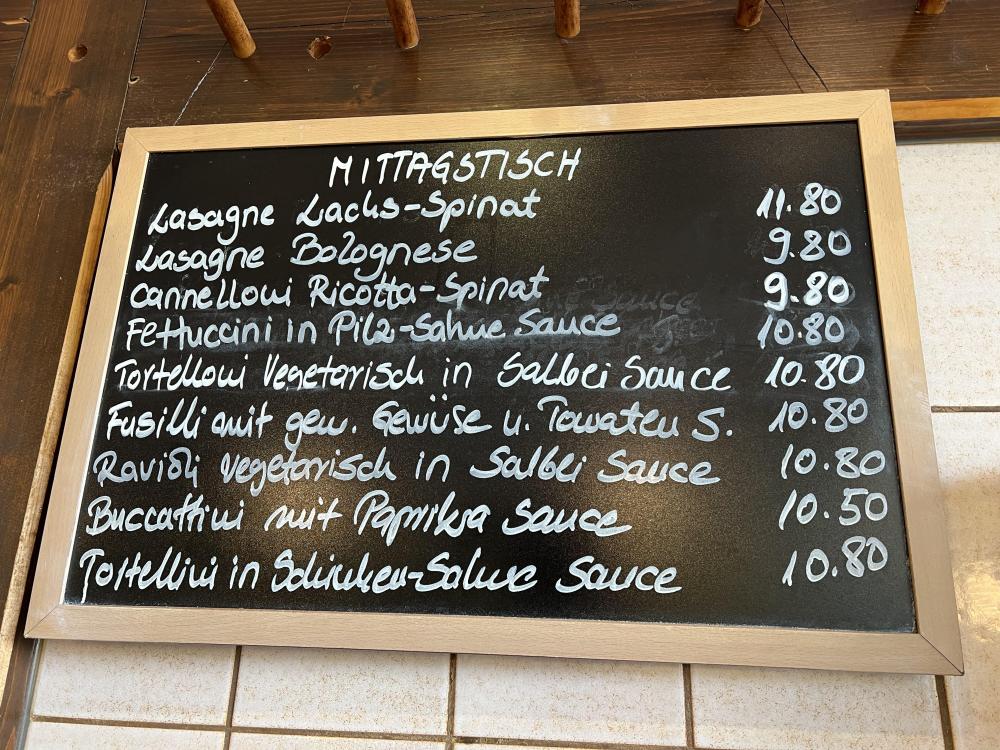 MITTAGSTISCH
Lasagne Lachs-Spinat 11.80
Lasagne Bolognese 9.80
Cannelloni Ricotta-Spinat 9.80
Fettuccini in Pilz-Sahne Sauce 10.80
Tortelloni Vegetarisch in Salbei Sauce 10.80
Fusilli mit gem. Gemüse u. Tomaten S. 10.80
Ravioli vegetarisch in Salbei Sauce 10.80
Buccattini mit Paprika Sauce 10.50
Tortellini in Schinken-Sahne Sauce 10.80